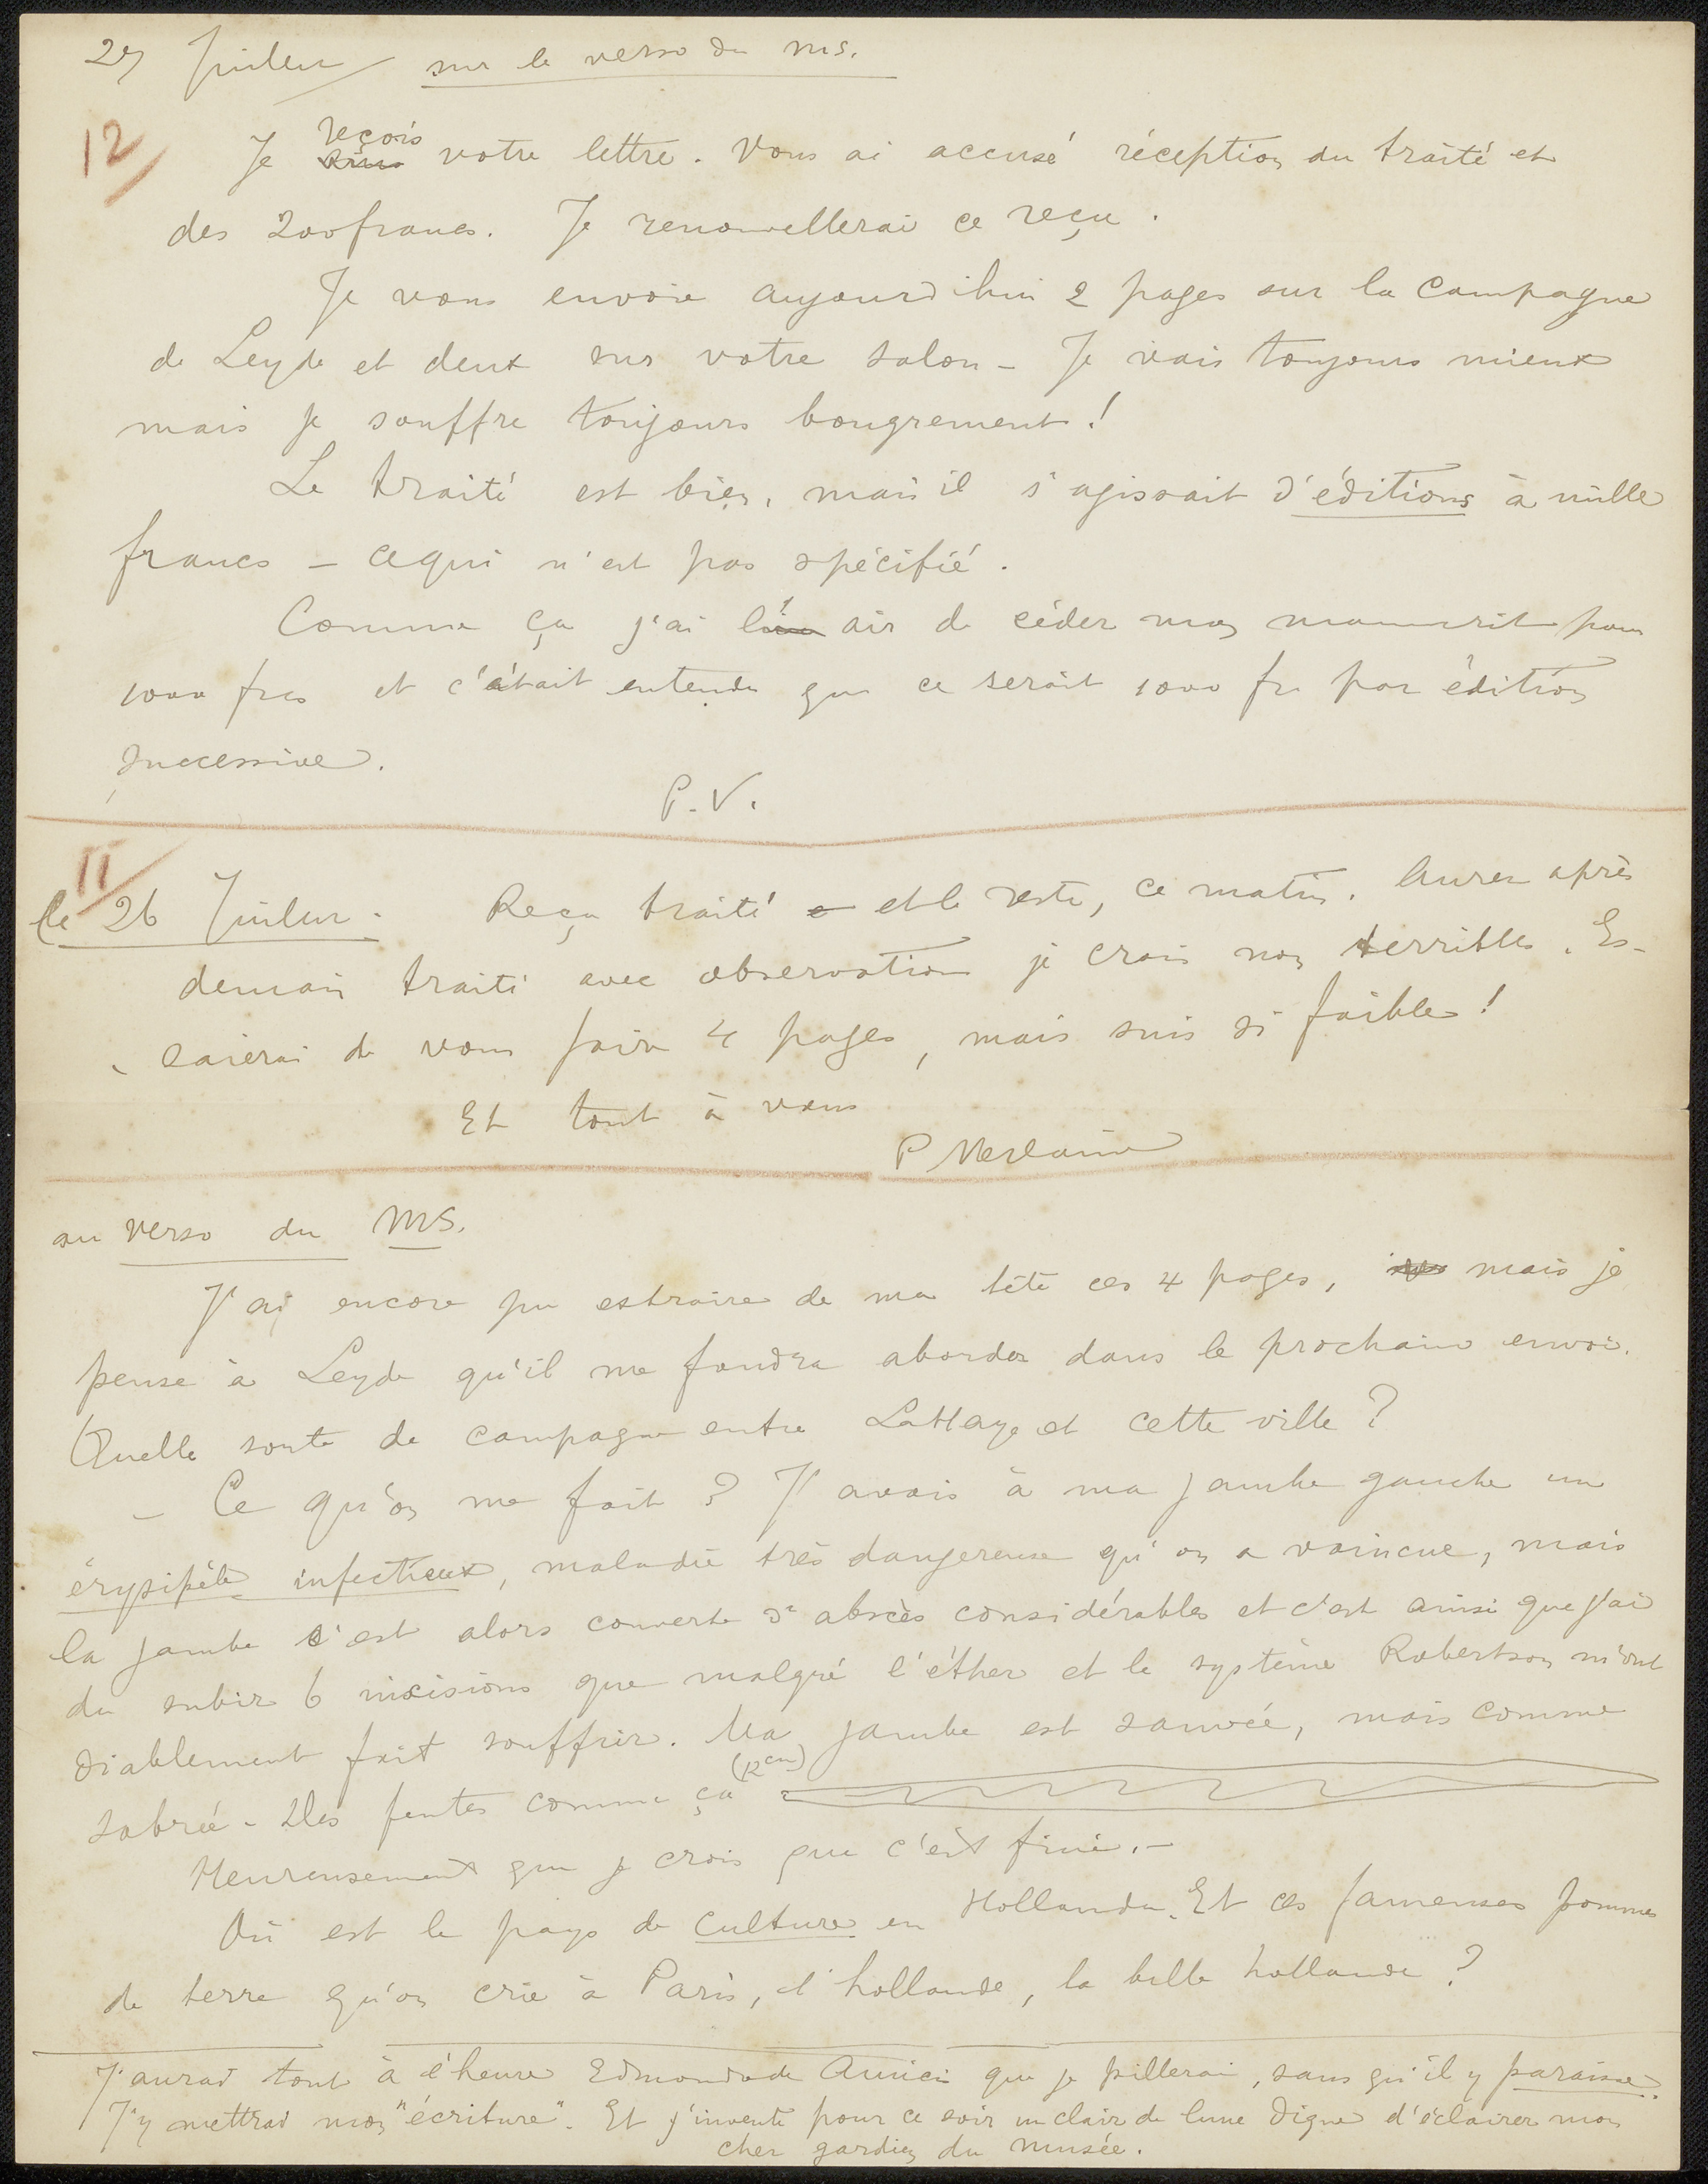 27 Juillet sur le verso du ms.
12 Je reçois votre lettre. Vous ai accusé réception du traité et
des 200 francs. Je renouvellerai ce reçu.
Je vous envoie aujourd'hui 2 pages sur la campagne
de Leyde et deux sur votre salon – Je vais toujours mieux
mais je souffre toujours bougrement!
Le traité est bien, mais il s'agissait d'éditions à mille
francs – ce qui n'est pas spécifié.
Comme ça j'ai l'air de céder mon manuscrit pour
1000 frcs et c'était entendu que ce serait 1000 fr par édition
successive.
P. V.
11
le 26 Juillet. Reçu traité et le reste, ce matin. Aurez après
demain traité avec observations je crois non terribles. Es-
saierai de vous faire 4 pages, mais suis si faible!
Et tout à vous
P Verlaine
au verso du MS.
J'ai encore pu extraire de ma tête ces 4 pages, mais je
pense à Leyde qu'il me faudra aborder dans le prochain envoi.
Quelle sorte de campagne entre La Haye et cette ville?
– Ce qu'on me fait? J'avais à ma jambe gauche un
érysipèle infectieux, maladie très dangereuse qu'on a vaincue, mais
la jambe s'est alors couverte d'abcès considérables et c'est ainsi que j'ai
du subir 6 incisions que malgré l'éther et le système Robertson m'ont
diablement fait souffrir. Ma jambe est sauvée, mais comme
sabrée – Des fentes comme ça (12 cm)
Heureusement que je crois que c'est fini. –
Où est le pays de culture en Hollande. Et ces fameuses pommes
de terre qu'on crie à Paris, d'hollande, la belle hollande?
J'aurai tout à l'heure Edmondo de Amicis que je pillerai, sans qu'il y paraisse.
J'y mettrai mon "écriture". Et j'invente pour ce soir un clair de lune digne d'éclairer mon
cher gardien du musée.